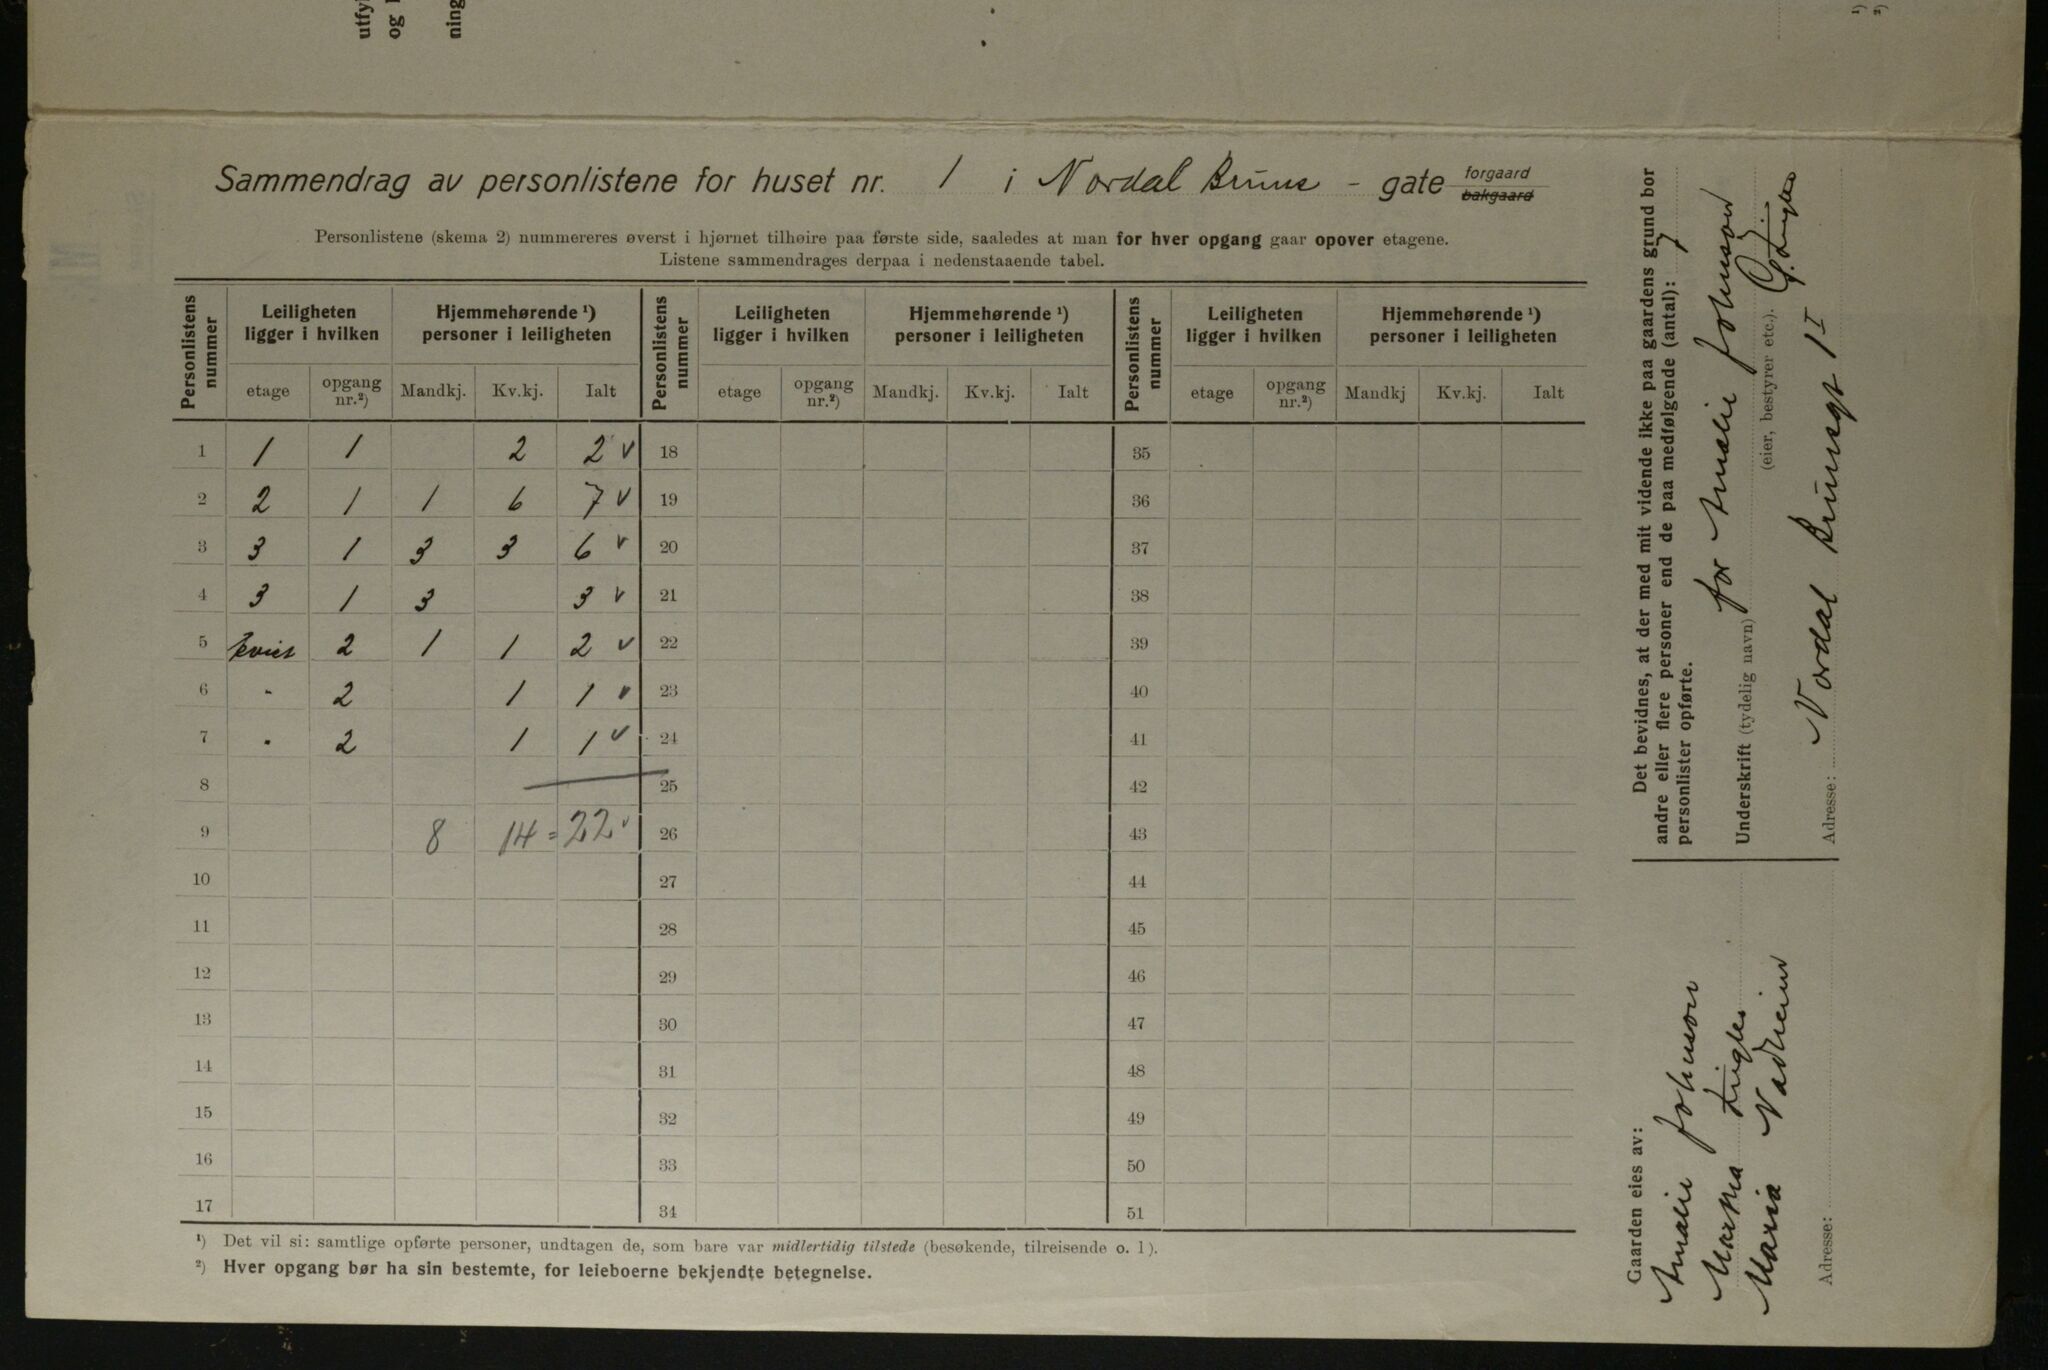 utfy
og
ning
¹)
²)
Sammendrag av personlistene for huset nr. 1 i Nordal Bruns - gate forgaard bakgaard
Personlistene (skema 2) nummereres øverst i hjørnet tilhøire paa første side, saaledes at man for hver opgang gaar opover etagene.
Listene sammendrages derpaa i nedenstaaende tabel.
Personlistens nummer | Leiligheten ligger i hvilken | Hjemmehørende ¹) personer i leiligheten | Personlistens nummer | Leiligheten ligger i hvilken | Hjemmehørende ¹) personer i leiligheten | Personlistens nummer | Leiligheten ligger i hvilken | Hjemmehørende ¹) personer i leiligheten
etage | opgang nr.²) | Mandkj. | Kv.kj. | Ialt | etage | opgang nr.²) | Mandkj. | Kv.kj. | Ialt | etage | opgang nr.²) | Mandkj | Kv.kj. | Ialt
1 1 1 2 2 v 18 35
2 2 1 1 6 7 v 19 36
3 3 1 3 3 6 v 20 37
4 3 1 3 3 v 21 38
5 kvist 2 1 1 2 v 22 39
6 - 2 1 1 v 23 40
7 - 2 1 1 v 24 41
8 25 42
9 8 14 = 22 v 26 43
10 27 44
11 28 45
12 29 46
13 30 47
14 31 48
15 32 49
16 33 50
17 34 51
¹) Det vil si: samtlige opførte personer, undtagen de, som bare var midlertidig tilstede (besøkende, tilreisende o. l).
²) Hver opgang bør ha sin bestemte, for leieboerne bekjendte betegnelse.
Det bevidnes, at der med mit vidende ikke paa gaardens grund bor
andre eller flere personer end de paa medfølgende (antal): 7
personlister opførte.
Underskrift (tydelig navn) for Amalie Johnson
(eier, bestyrer etc.).
Adresse: Nordal Brunsgt 1 I
Gaarden eies av:
Amalie Johnson
Martha
Maria
Adresse: